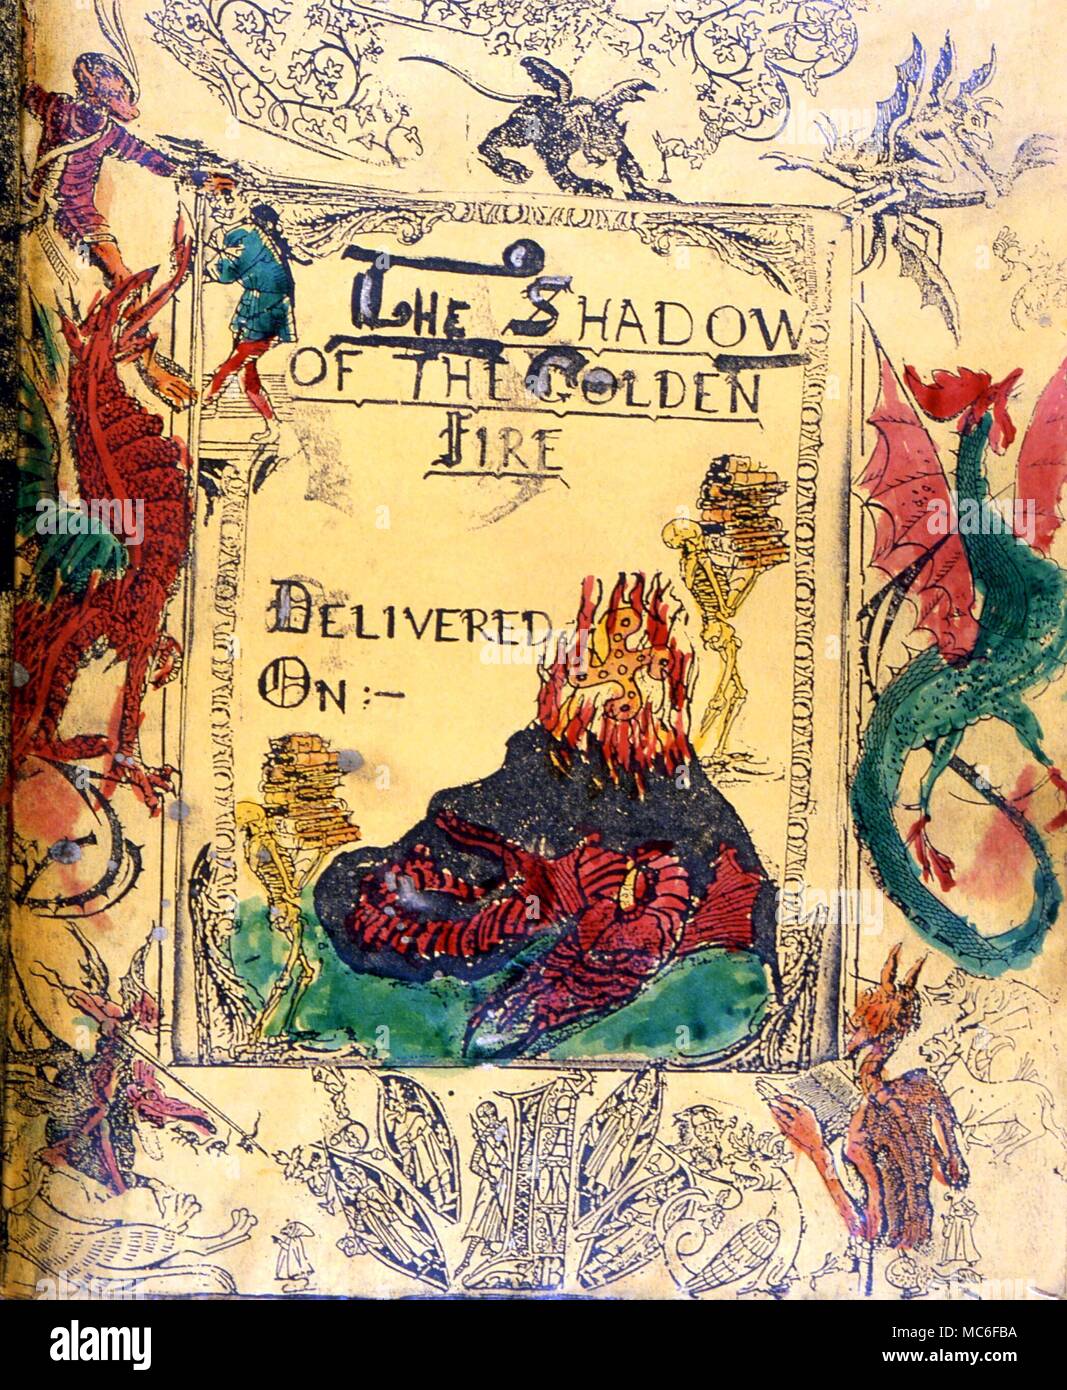 THE SHADOW
OF THE GOLDEN
FIRE
DELIVERED
ON :-
alamy
Image ID: MC6FBA
www.alamy.com